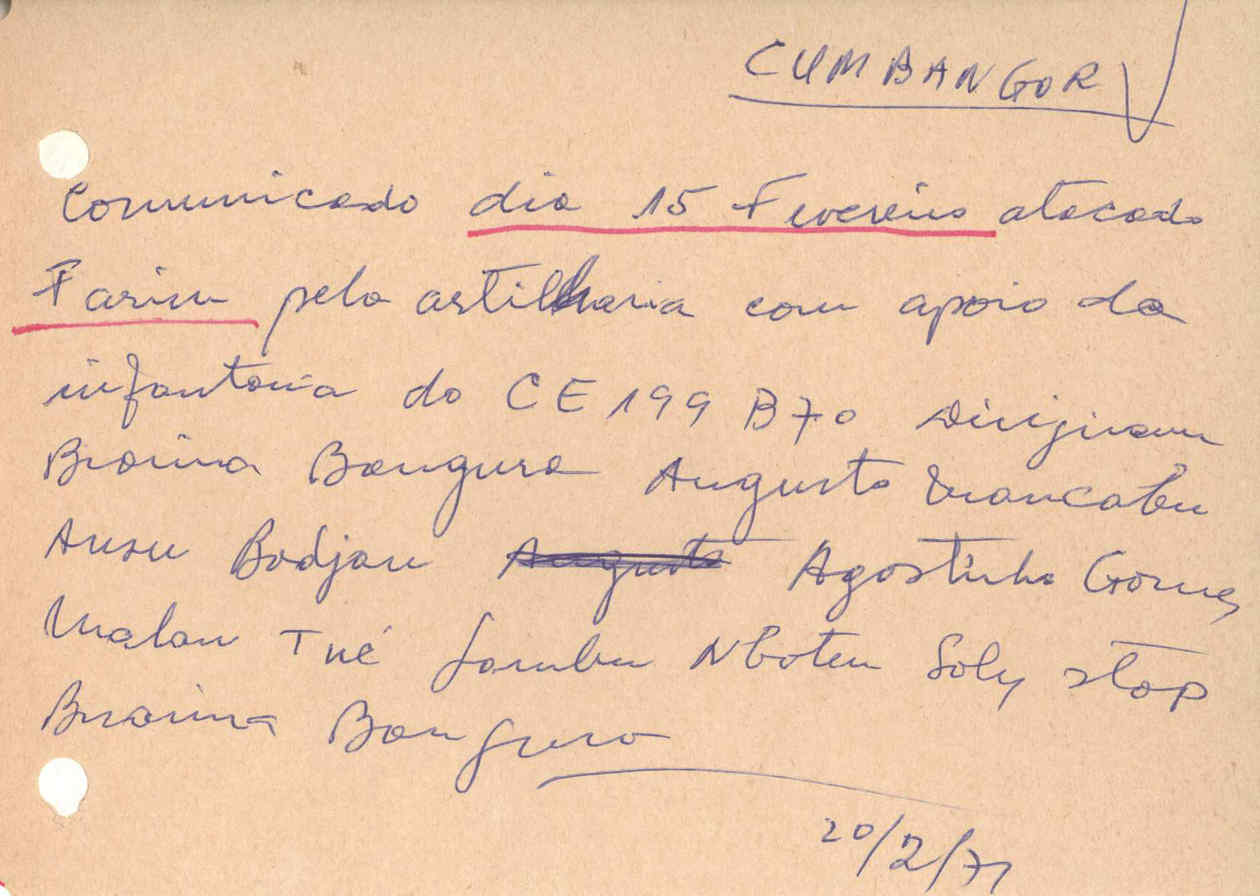 CUMBANGOR
Comunicado dia 15 Fevereiro atacado
Farim pela artilharia com apoio da
infantaria do CE 199 B70 Dirigiram
Braima Bangura Augusto Mancabu
Ansu Bodjan Augusto Agostinho Gomes
Malan Tué Sambu Nboten Soly stop
Braima Bangura
20/2/71